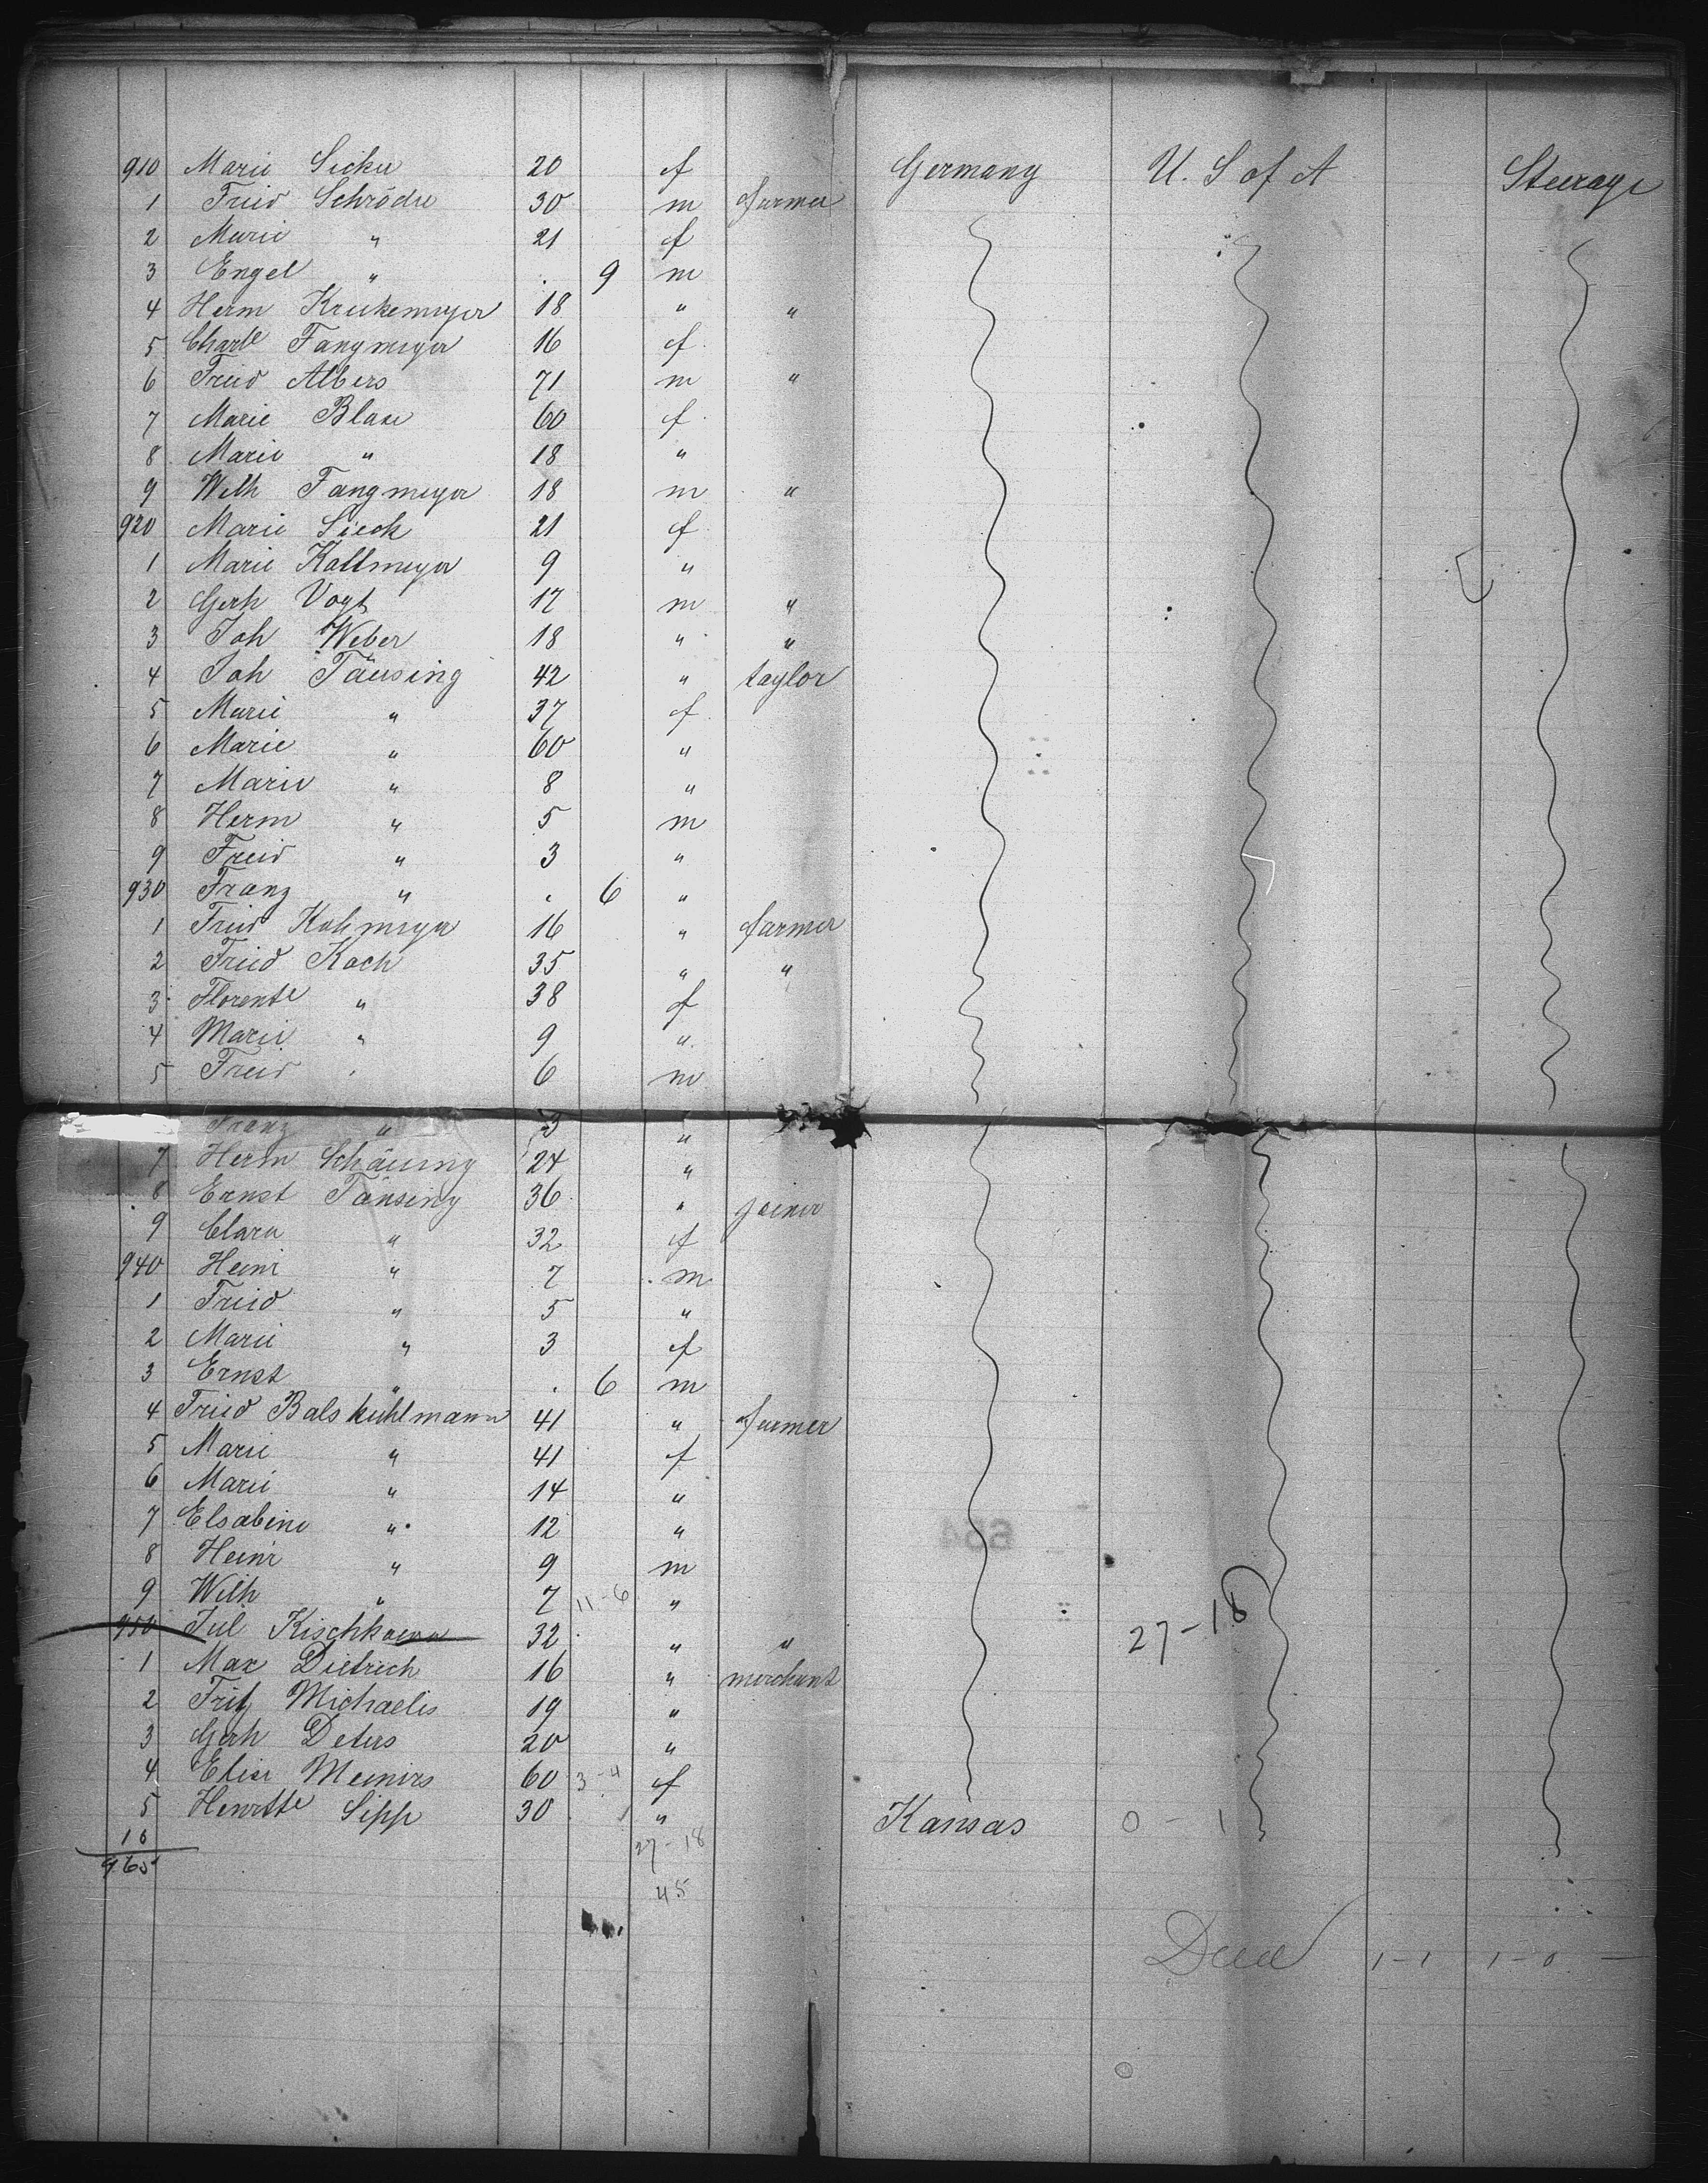 910 Marie Sieker 20 f Germany U. S of A Steerage
1 Fried Schröder 30 m farmer
2 Marie " 21 f
3 Engel " . 9 m
4 Herm Krukemeyer 18 " "
5 Charlte Fangmeyer 16 f
6 Fried Albers 71 m "
7 Marie Blase 60 f
8 Marie " 18 "
9 Wilh Fangmeyer 18 m "
920 Marie Sieck 21 f
1 Marie Kattmeyer 9 "
2 Gerh Vogt 17 m "
3 Joh Weber 18 " "
4 Joh Täusing 42 " taylor
5 Marie " 37 f
6 Marie " 60 "
7 Marie " 8 "
8 Herm " 5 m
9 Fried " 3 "
930 Franz " . 6 "
1 Fried Kohmeyer 16 " farmer
2 Fried Koch 35 " "
3 Florente " 38 f
4 Marie " 9 "
5 Fried " 6 m
Franz " 3 "
7 Herm Schäusing 24 "
8 Ernst Täusing 36 " joiner
9 Clara " 32 f
940 Heinr " 7 m
1 Fried " 5 "
2 Marie " 3 f
3 Ernst " . 6 m
4 Fried Balskuhlmann 41 " farmer
5 Marie " 41 f
6 Marie " 14 "
7 Elsabine " 12 "
8 Heinr " 9 m
9 Wilh " 7 11-6 " 27-18
950 Jul 32 " "
1 Max Dietrich 16 " merchant
2 Fritz Michaelis 19 "
3 Gerh Deters 20 "
4 Elise Meiners 60 3-4 f
5 Henrtte Sipp 30 " Kansas 0 - 1
10 27-18
965
45
Died 1-1 1-0 -